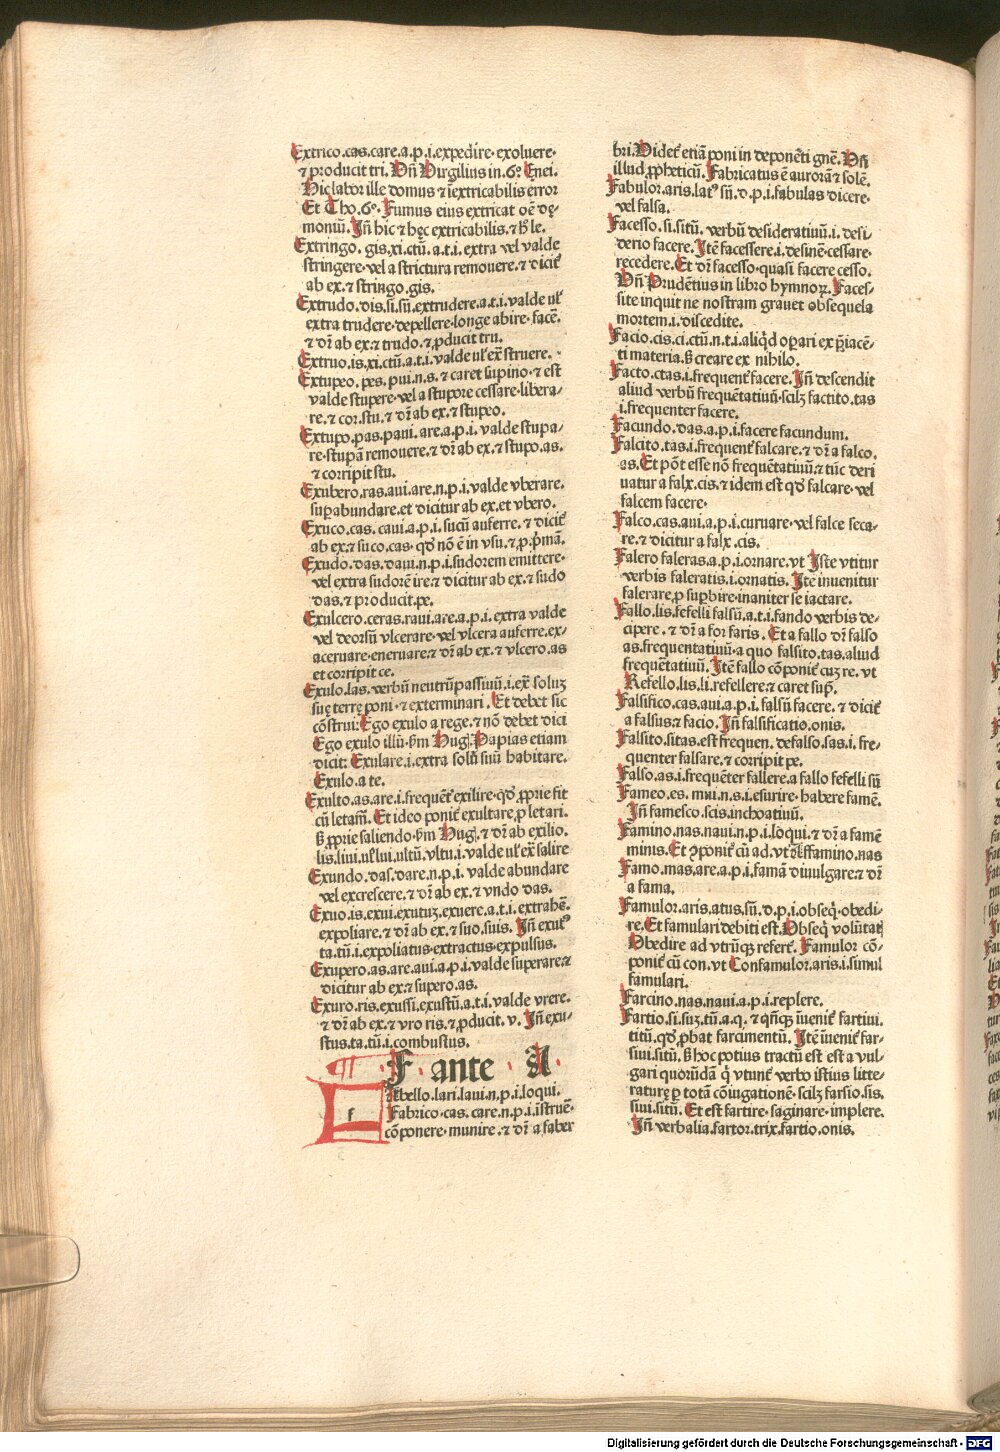 Extrico.cas.care.a.p.i.expedire.exoluere.
⁊ producit tri. Vñ Virgilius in.6º.Enei.
Hic labor ille domus ⁊ īextricabilis error
Et Tho.6º. Fumus eius extricat oē dę-
moniū. Jñ hic ⁊ hęc extricabilis.⁊ h̄ le.
Extringo.gis.xi.ctū.a.t.i.extra vel valde
stringere.vel a strictura remouere.⁊ dicit᷑
ab ex.⁊ stringo.gis.
Extrudo.dis.si.sū.extrudere.a.t.i.valde ul᷑
extra trudere.depellere.longe abire.facē.
⁊ dr̄ ab ex.⁊ trudo.⁊ ꝓducit tru.
Extruo.is.xi.ctū.a.t.i.valde ul᷑ ex̄ struere.
Extupeo.pes.pui.n.s.⁊ caret supino.⁊ est
valde stupere.vel a stupore cessare.libera-
re.⁊ cor.stu.⁊ dr̄ ab ex.⁊ stupeo.
Extupo.pas.paui.are.a.p.i.valde stupa-
re.stupā remouere.⁊ dr̄ ab ex.⁊ stupo.as.
⁊ corripit stu.
Exubero.ras.aui.are.n.p.i.valde vberare.
suꝑabundare.et dicitur ab ex.et vbero.
Exuco.cas.caui.a.p.i.sucū auferre.⁊ dicit᷑
ab ex.⁊ suco.cas.qđ nō ē in vsu.⁊ ꝓ.p̄mā.
Exudo.das.daui.n.p.i.sudorem emittere.
vel extra sudorē ire.⁊ dicitur ab ex.⁊ sudo
das.⁊ producit.pe.
Exulcero.ceras.raui.are.a.p.i.extra valde
vel deorsū vlcerare.vel vlcera auferre.ex-
aceruare.eneruare.⁊ dr̄ ab ex.⁊ vlcero.as
et corripit ce.
Exulo.las.verbū neutrūpassiuū.i.ex̄ soluꝫ
suę terrę poni.⁊ exterminari. Et debet sic
cōstrui: Ego exulo a rege.⁊ nō debet dici
Ego exulo illū.ẜm Hug. Papias etiam
dicit: Exulare.i.extra solū suū habitare.
Exulo.a te.
Exulto.as.are.i.frequent᷑ exilire.qđ ꝓprie fit
cū letam̄. Et ideo ponit᷑ exultare.ꝓ letari.
ẜ ꝓprie saliendo.ẜm Hug.⁊ dr̄ ab exilio.
lis.liui.ul᷑ lui.ultū.vltu.i.valde ul᷑ ex̄ salire
Exundo.das.dare.n.p.i.valde abundare
vel excrescere.⁊ dr̄ ab ex.⁊ vndo das.
Exuo.is.exui.exutuꝫ.exuere.a.t.i.extrahē.
expoliare.⁊ dr̄ ab ex.⁊ suo.suis. Jñ exut᷒
ta.tū.i.expoliatus.extractus.expulsus.
Exupero.as.are.aui.a.p.i.valde superare.⁊
dicitur ab ex.⁊ supero.as.
Exuro.ris.exussi.exustū.a.t.i.valde vrere.
⁊ dr̄ ab ex.⁊ vro ris.⁊ ꝓducit.v. Jñ exu-
stus.ta.tū.i.combustus.
F ante A
f
Abello.lari.laui.n.p.i.loqui.
Fabrico.cas.care.n.p.i.īstruē.
cōponere.munire.⁊ dr̄ a faber
bri. Videt᷑ etiā poni in deponēti gn̄e. Vñ
illud ꝓpheticū. Fabricatus ē aurorā ⁊ solē.
Fabulor.aris.lat᷒ sū.d.p.i.fabulas dicere.
vel falsa.
Facesso.si.sitū.verbū desideratiuū.i.desi-
derio facere. Itē facessere.i.desinē.cessare.
recedere. Et dr̄ facesso.quasi facere cesso.
Vñ Prudētius in libro hymnoꝝ. Faces-
site inquit ne nostram grauet obsequela
mortem.i.discedite.
Facio.cis.ci.ctū.n.t.i.aliq̇d oꝑari ex p̄iacē-
ti materia.ẜ creare ex nihilo.
Facto.ctas.i.frequent᷑ facere. Jñ descendit
aliud verbū frequētatiuū.scilꝫ factito.tas
i.frequenter facere.
Facundo.das.a.p.i.facere facundum.
Falcito.tas.i.frequent᷑ falcare.⁊ dr̄ a falco.
as. Et pōt esse nō frequētatiuū.⁊ tūc deri
uatur a falx.cis.⁊ idem est qđ falcare.vel
falcem facere.
Falco.cas.aui.a.p.i.curuare.vel falce seca-
re.⁊ dicitur a falx.cis.
Falero faleras.a.p.i.ornare.vt Iste vtitur
verbis faleratis.i.ornatis. Itē inuenitur
falerare.ꝓ suꝑbire.inaniter se iactare.
Fallo.lis.fefelli falsū.a.t.i.fando verbis de-
cipere.⁊ dr̄ a for faris. Et a fallo dr̄ falso
as.frequentatiuū.a quo falsito.tas.aliud
frequētatiuū. Itē fallo cōponit᷑ cuꝫ re.vt
Refello.lis.li.refellere.⁊ caret sup̄.
Falsifico.cas.aui.a.p.i.falsū facere.⁊ dicit᷑
a falsus.⁊ facio. Jñ falsificatio.onis.
Falsito.sitas.est frequen.de falso.sas.i.fre-
quenter falsare.⁊ corripit pe.
Falso.as.i.frequēter fallere.a fallo fefelli sū
Fameo.es.mui.n.s.i.esurire.habere famē.
Jñ famesco.scis.inchoatiuū.
Famino.nas.naui.n.p.i.loqui.⁊ dr̄ a famē
minis. Et ꝯponit᷑ cū ad.vt Affamino.nas
Famo.mas.are.a.p.i.famā diuulgare.⁊ dr̄
a fama.
Famulor.aris.atus.sū.d.p.i.obseq̇.obedi-
re. Et famulari debiti est. Obseq̇ volūtat᷑
Obedire ad vtrūqꝫ refert᷑. Famulor cō-
ponit᷑ cū con.vt Confamulor.aris.i.simul
famulari.
Farcino.nas.naui.a.p.i.replere.
Fartio.si.suꝫ.tū.a.q.⁊ qñqꝫ iuenit᷑ fartiui.
titū.qđ ꝓbat farcimentū. Itē iuenit᷑ far-
siui.sitū.ẜ hoc potius tractū est est a vul-
gari quorūdā q̇ vtunt᷑ verbo istius litte-
raturę ꝑ totā cōiugationē.scilꝫ farsio.sis.
siui.sitū. Et est fartire.saginare.implere.
Jñ verbalia.fartor.trix.fartio.onis.
Digitalisierung gefördert durch die Deutsche Forschungsgemeinschaft - DFG